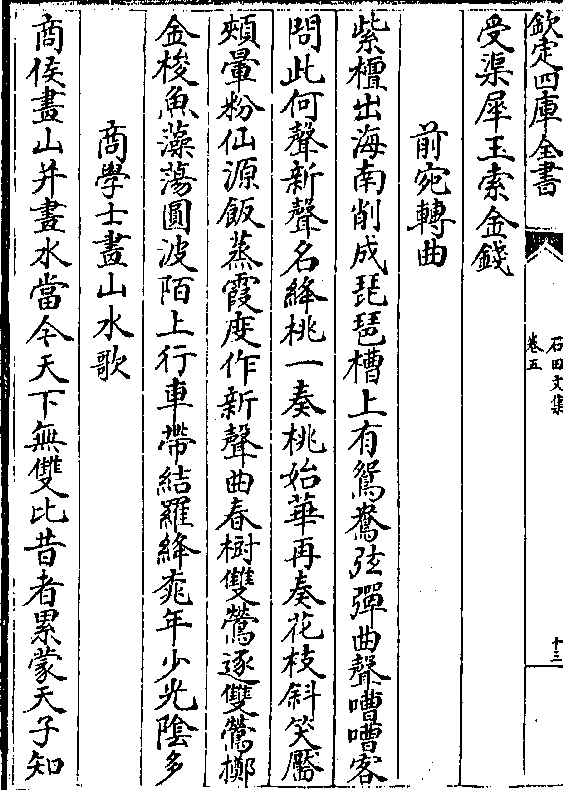 欽定四庫全書
石田文集
卷五
十三
受渠犀玉索金錢
前宛轉曲
紫檀出海南削成琵琶槽上有鴛鴦弦彈曲聲嘈嘈客
問此何聲新聲名絳桃一奏桃始華再奏花枝斜笑靨
頰暈粉仙源飯蒸霞度作新聲曲春樹雙鶯逐雙鶯擲
金梭魚藻蕩圓波陌上行車帶結羅絳桃年少光陰多
商學士畫山水歌
商侯畫山并畫水當今天下無雙比昔者累蒙天子知